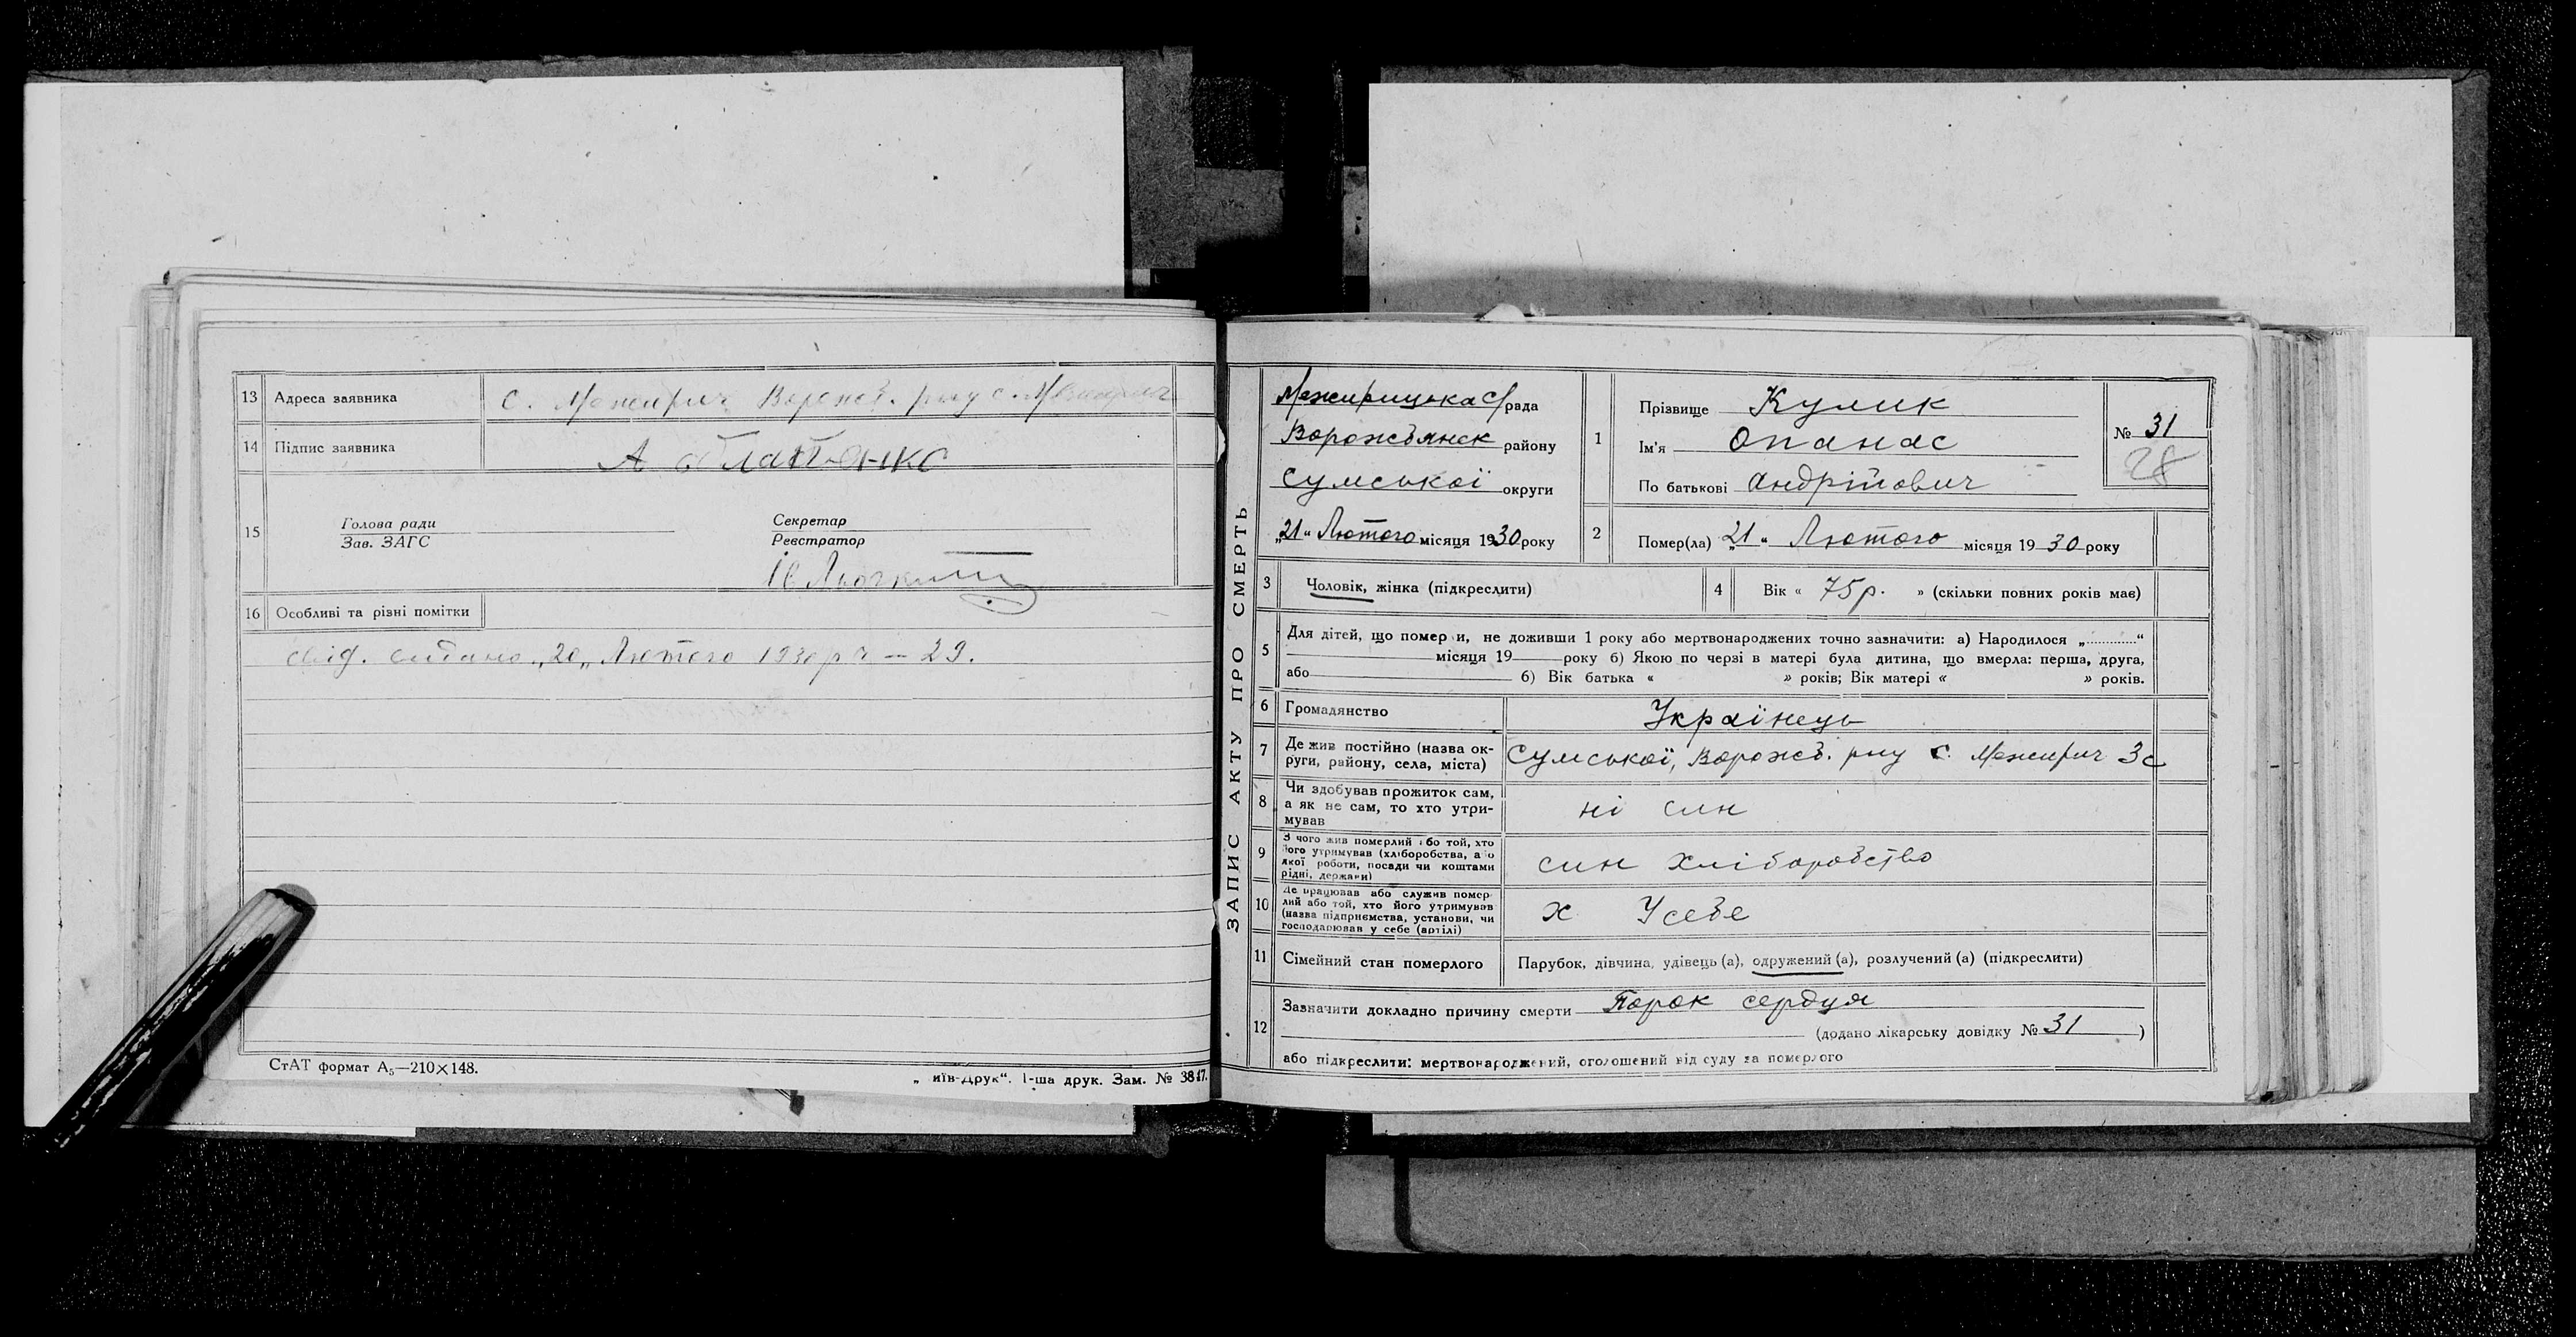 13 Адреса заявника с. Межирич Ворожб. рну с. Межирич
14 Підпис заявника А
15 Голова ради
Зав. ЗАГС
Секретар
Реєстратор
Ів
16 Особливі та різні помітки
свід. видано „20„ Лютого 1930 р ч — 29.
СтАТ формат А5—210×148.
„ иїв-Друк“. 1-ша друк. Зам. № 3817.
ЗАПИС АКТУ ПРО СМЕРТЬ
Межирицька с/рада
Ворожбянск району
Сумської округи
„21“ Лютого місяця 1930 року
1 Прізвище Кулик
Ім'я Опанас
По батькові Андрійович
№ 31
28
2 Помер(ла) „21“ Лютого місяця 1930 року
3 Чоловік, жінка (підкреслити)
4 Вік « 75 р. » (скільки повних років має)
5 Для дітей, що помер и, не доживши 1 року або мертвонароджених точно зазначити: а) Народилося „...........“
місяця 19 року б) Якою по черзі в матері була дитина, що вмерла: перша, друга,
або б) Вік батька « » років; Вік матері « » років.
6 Громадянство Українець
7 Де жив постійно (назва ок-
руги, району, села, міста) Сумської, Ворожб. рну с. Межирич 3с
8 Чи здобував прожиток сам,
а як не сам, то хто утри-
мував ні син
9 З чого жив померлий або той, хто
його утримував (хліборобства, або
якої роботи, посади чи коштами
рідні, держави) син хліборобство
10 Де працював або служив помер-
лий або той, хто його утримував
(назва підприємства, установи, чи
господарював у себе (артілі) х Усебе
11 Сімейний стан померлого Парубок, дівчина, удівець (а), одружений (а), розлучений (а) (підкреслити)
12 Зазначити докладно причину смерти Порок сердця
(додано лікарську довідку № 31 )
або підкреслити: мертвонароджений, оголошений від суду за померлого